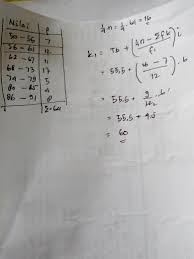 Nilai | F
50 - 55 | 7
56 - 61 | 12
62 - 67 | 11
68 - 73 | 17
74 - 79 | 5
80 - 85 | 4
86 - 91 | 8
Σ = 64
1/4 n = 1/4 . 64 = 16
K1 = Tb + (1/4n - Σfk / f1) i
= 55,5 + (16 - 7 / 12) . 6
= 55,5 + 9/12 . 6
= 55,5 + 4,5
= 60